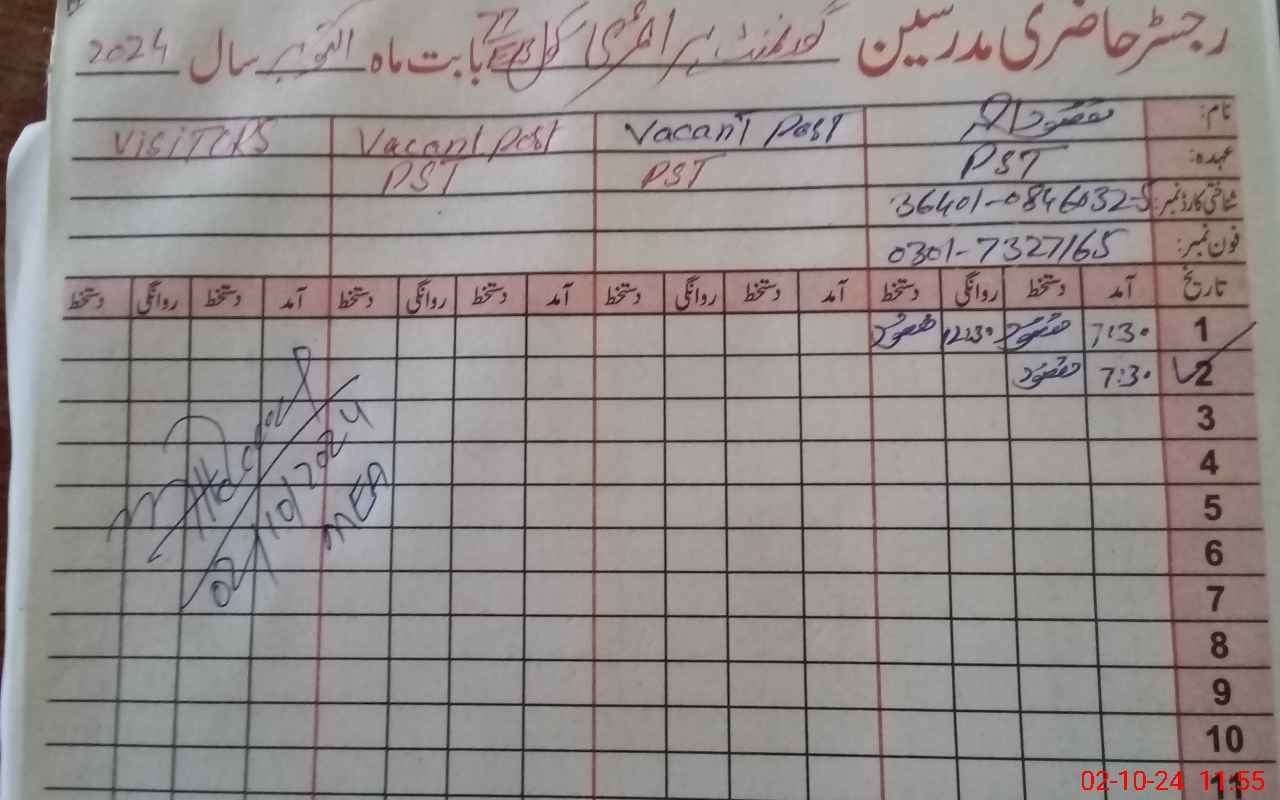 رجسٹر حاضری مدرسین گورنمنٹ پرائمری سکول 77/EB بابت ماہ اکتوبر سال 2024
نام: مقصود احمد Vacant Post Vacant Post VISITORS
عہدہ: PST PST PST
شناختی کارڈ نمبر: 36401-0846032-5
فون نمبر: 0301-7327165
تاریخ آمد دستخط روانگی دستخط آمد دستخط روانگی دستخط آمد دستخط روانگی دستخط آمد دستخط روانگی دستخط
1 7:30 مقصود 12:30 مقصود
2 7:30 مقصود
3
4
5
6
7
8
9
10
11
02/10/2024
MEA
02-10-24 11:55